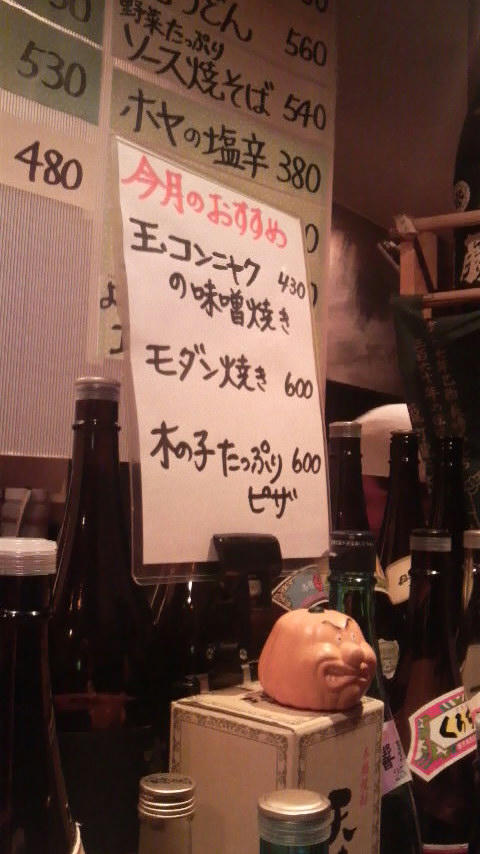 うどん 560
野菜たっぷり
ソース焼そば 540
ホヤの塩辛 380
530
480
今月のおすすめ
玉コンニャク 430
の味噌焼き
モダン焼き 600
木の子たっぷり 600
ピザ
天